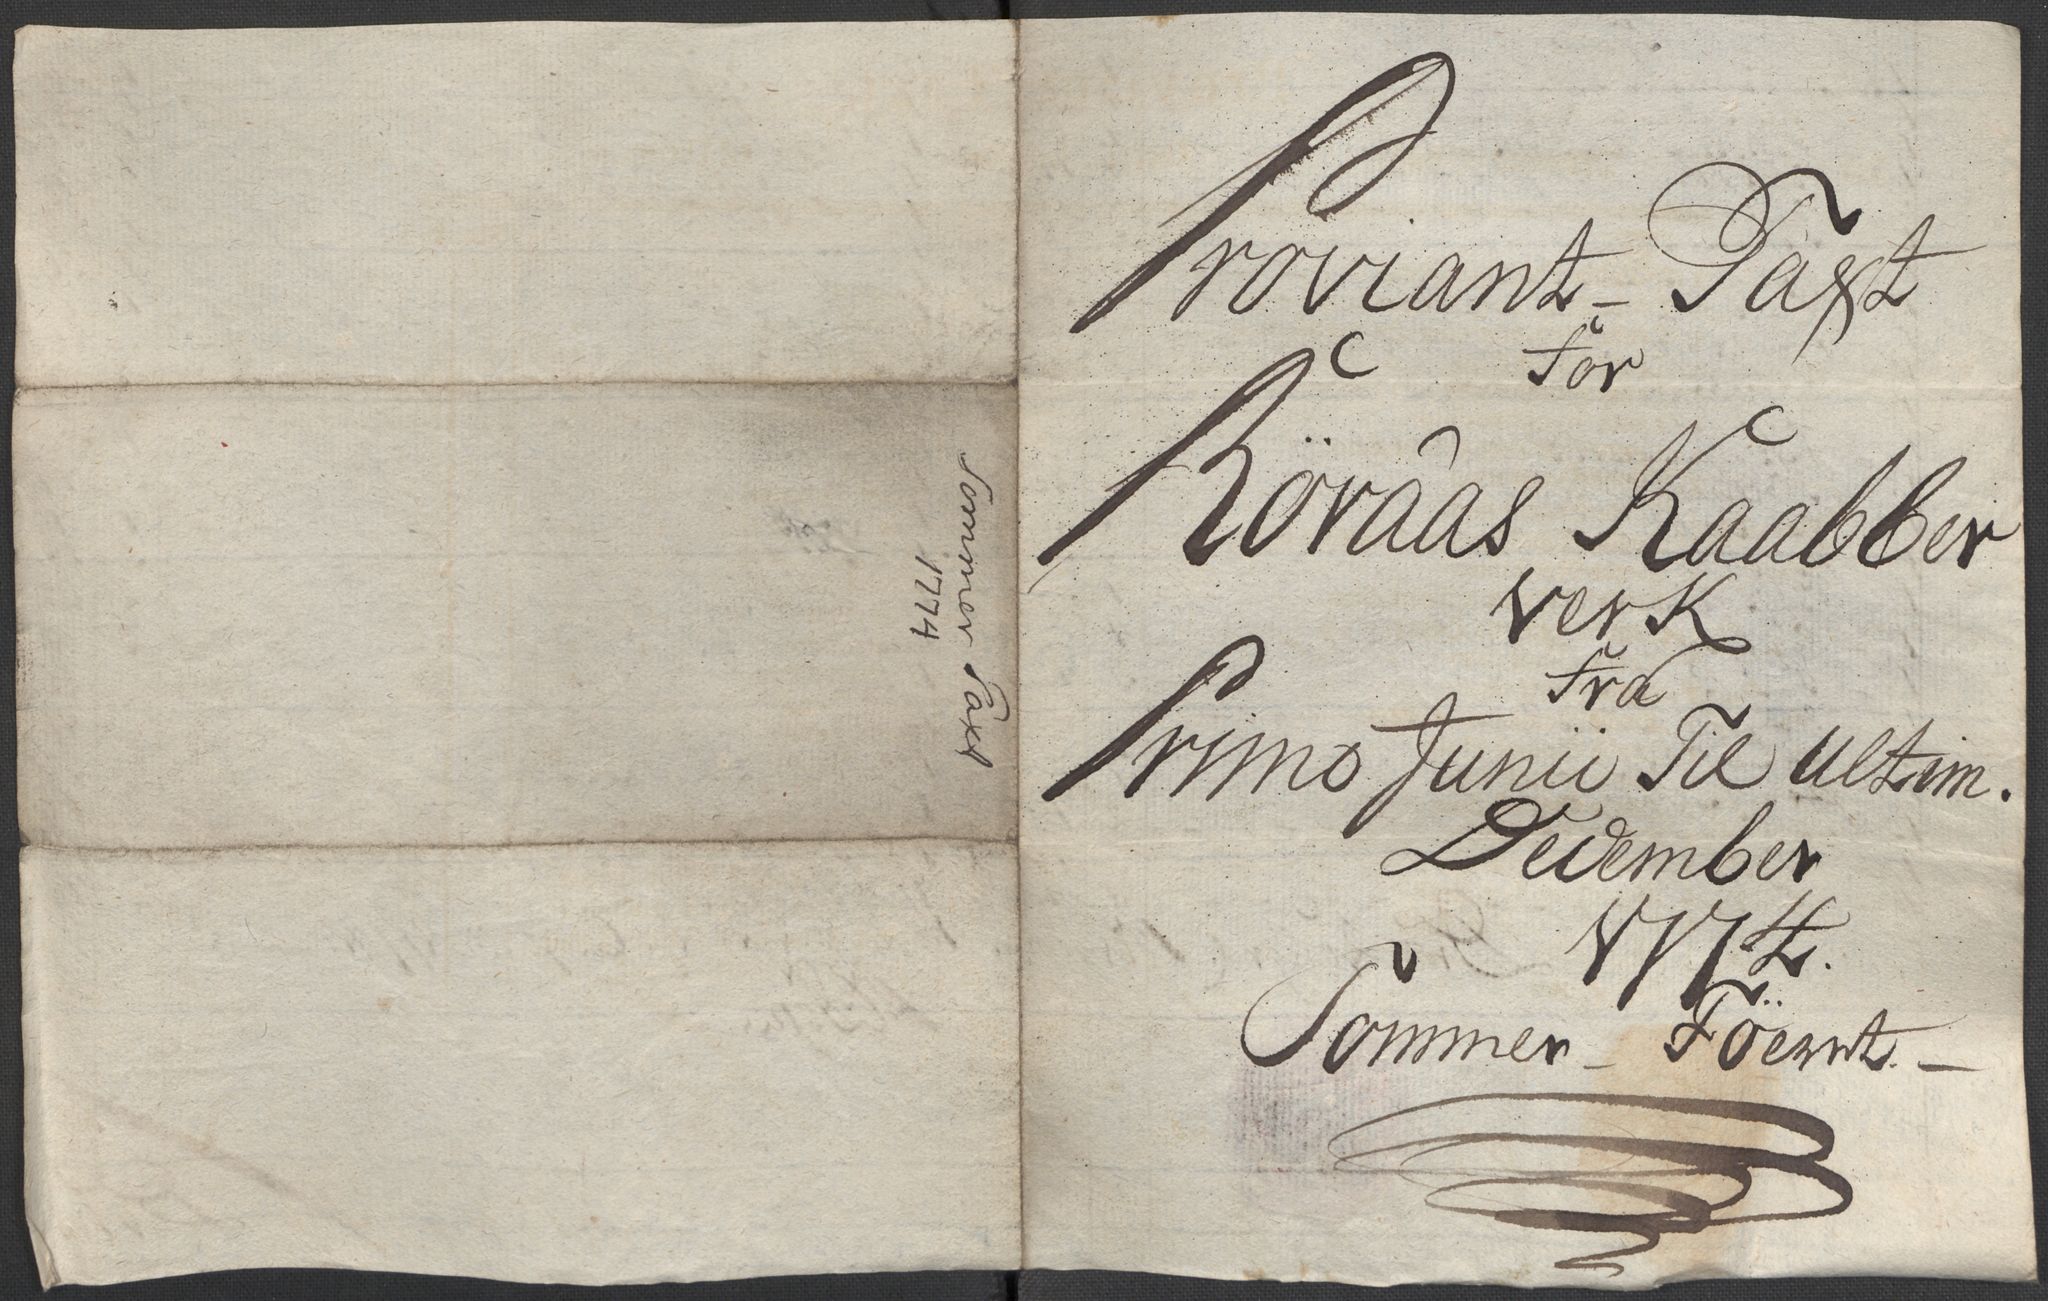 Sommer Taxt
1774
Proviant- Taxt
for
Röraas Kaabber
verk
fra
Primo Junii Til ultim.
December
1774.
Sommer- Föernt.-